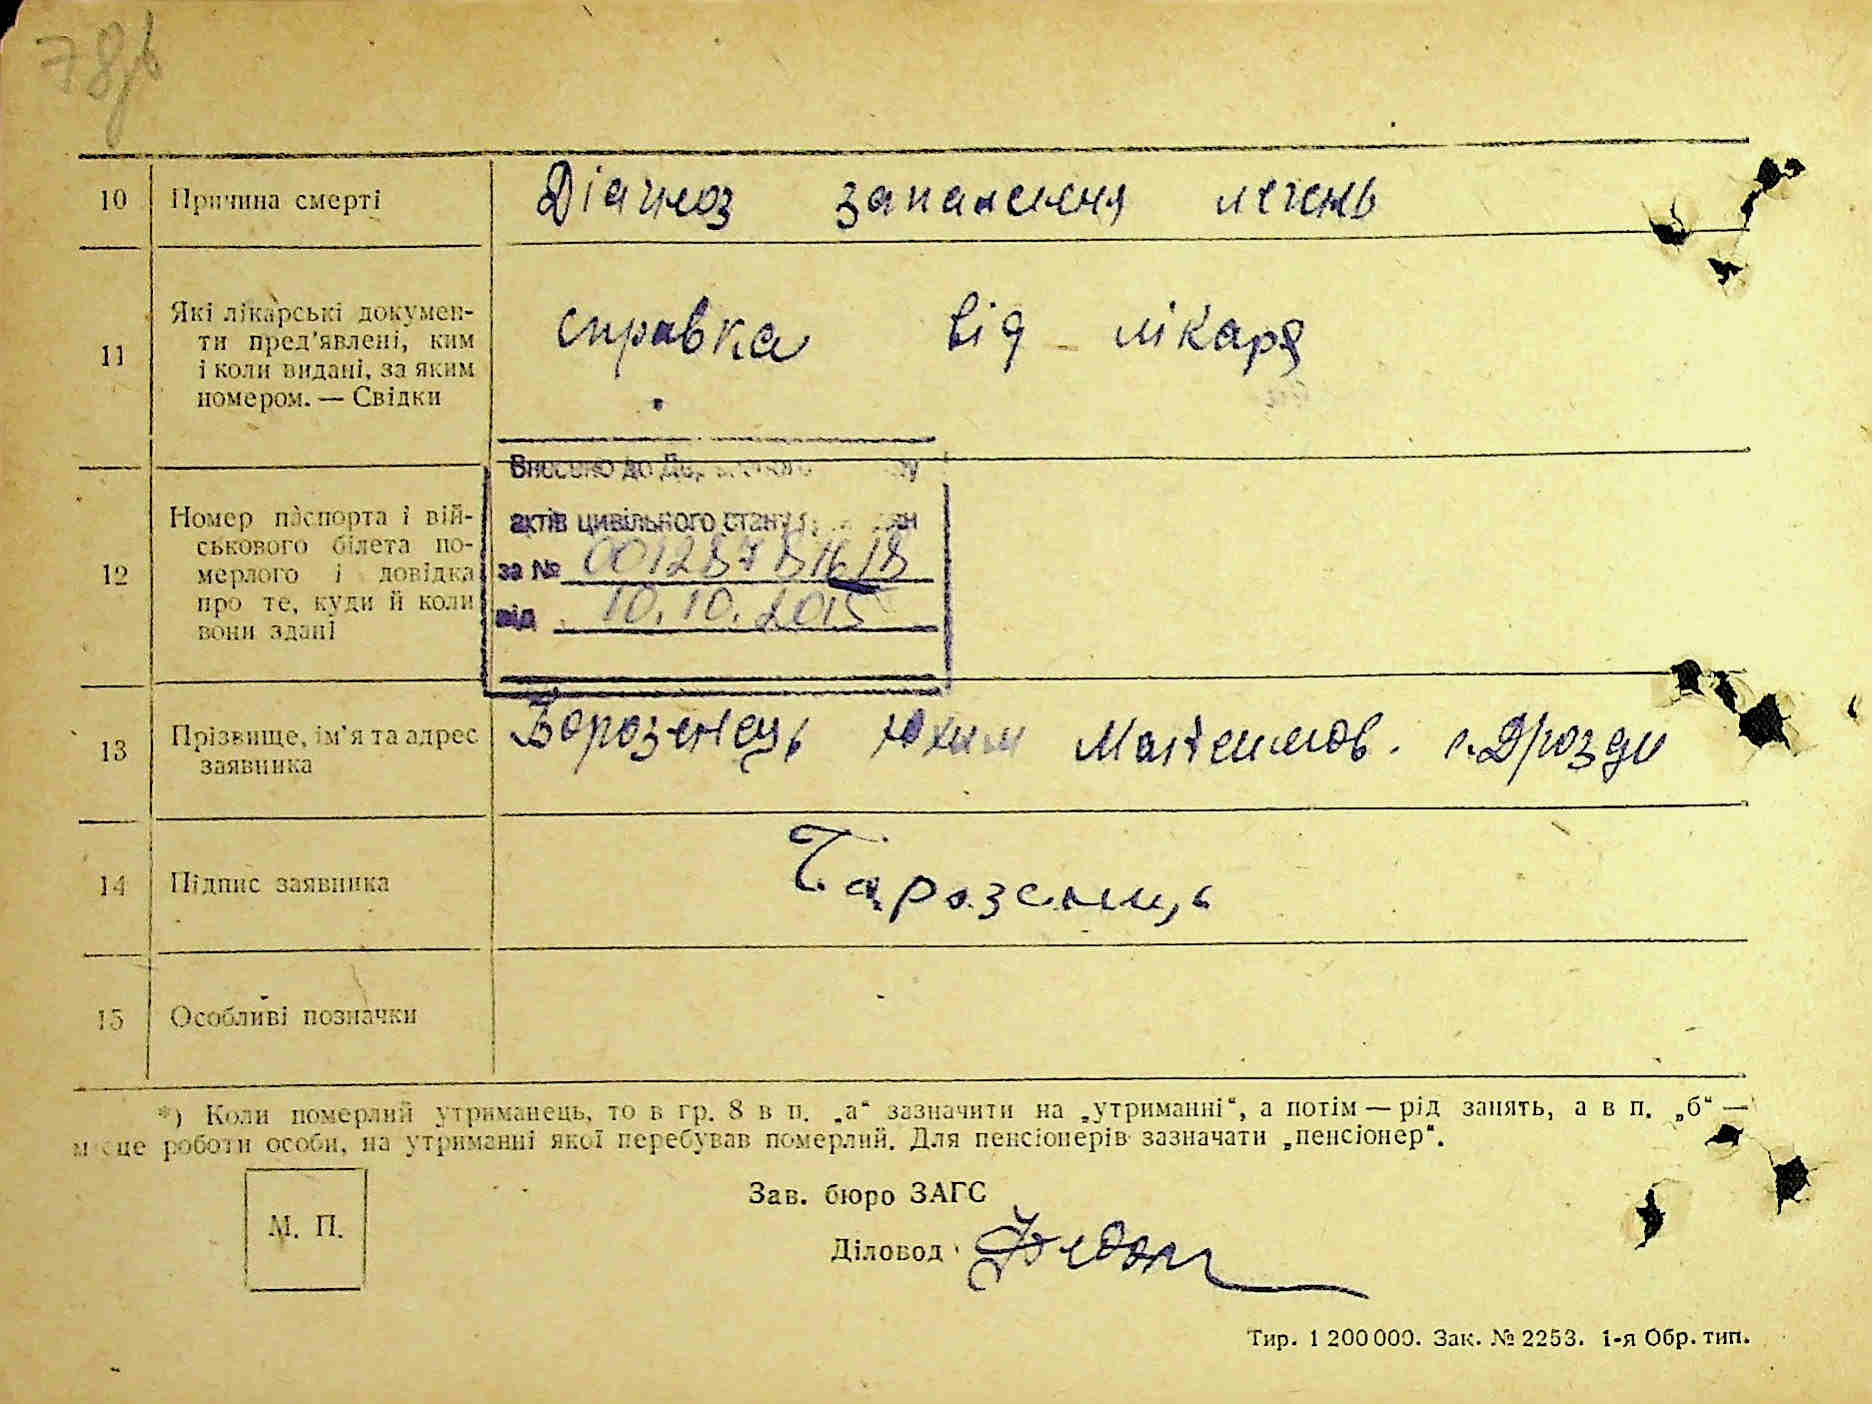 10 Причина смерті Діагноз запалення легень
11 Які лікарські докумен-
ти пред'явлені, ким
і коли видані, за яким
номером. — Свідки
справка від лікаря
Внесено до
актів цивільного стану
за № 00128781618
від 10.10.2015
12 Номер паспорта і вій-
ськового білета по-
мерлого і довідка
про те, куди й коли
вони здані
13 Прізвище, ім'я та адрес
заявника
Борозенець Юхим с. Дрозди
14 Підпис заявника Барозенець
15 Особливі позначки
*) Коли померлий утриманець, то в гр. 8 в п. „а“ зазначити на „утриманні“, а потім — рід занять, а в п. „б“ —
місце роботи особи, на утриманні якої перебував померлий. Для пенсіонерів зазначати „пенсіонер“.
М. П.
Зав. бюро ЗАГС
Діловод
Тир. 1 200 000. Зак. № 2253. 1-я Обр. тип.